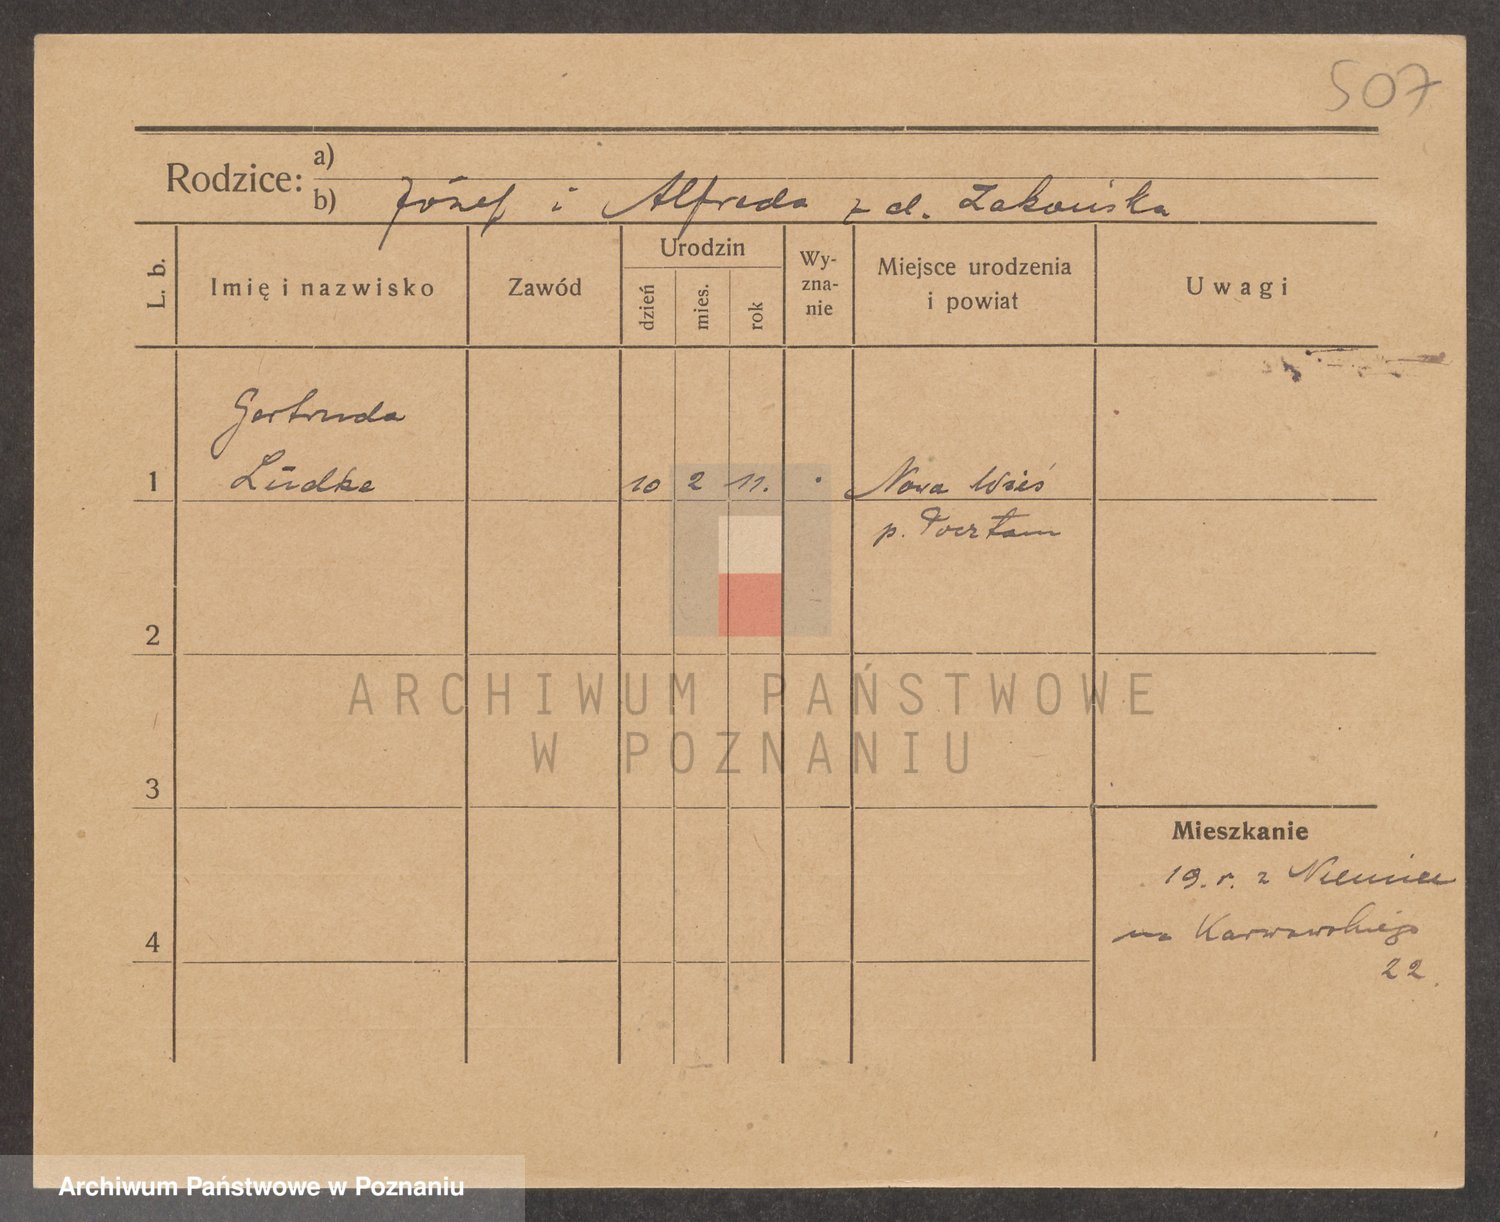 507
Rodzice:
a)
b) Józef i Alfreda z d. Zakońska
L. b.
Imię i nazwisko
Zawód
Urodzin
dzień
mies.
rok
Wy-
zna-
nie
Miejsce urodzenia
i powiat
Uwagi
Gertruda
1 Lüdke 10 2 11. Nowa Wieś
p.
2
ARCHIWUM PAŃSTWOWE
W POZNANIU
3
Mieszkanie
19. r. z Niemiec
4 na Karwowskiego
22.
Archiwum Państwowe w Poznaniu